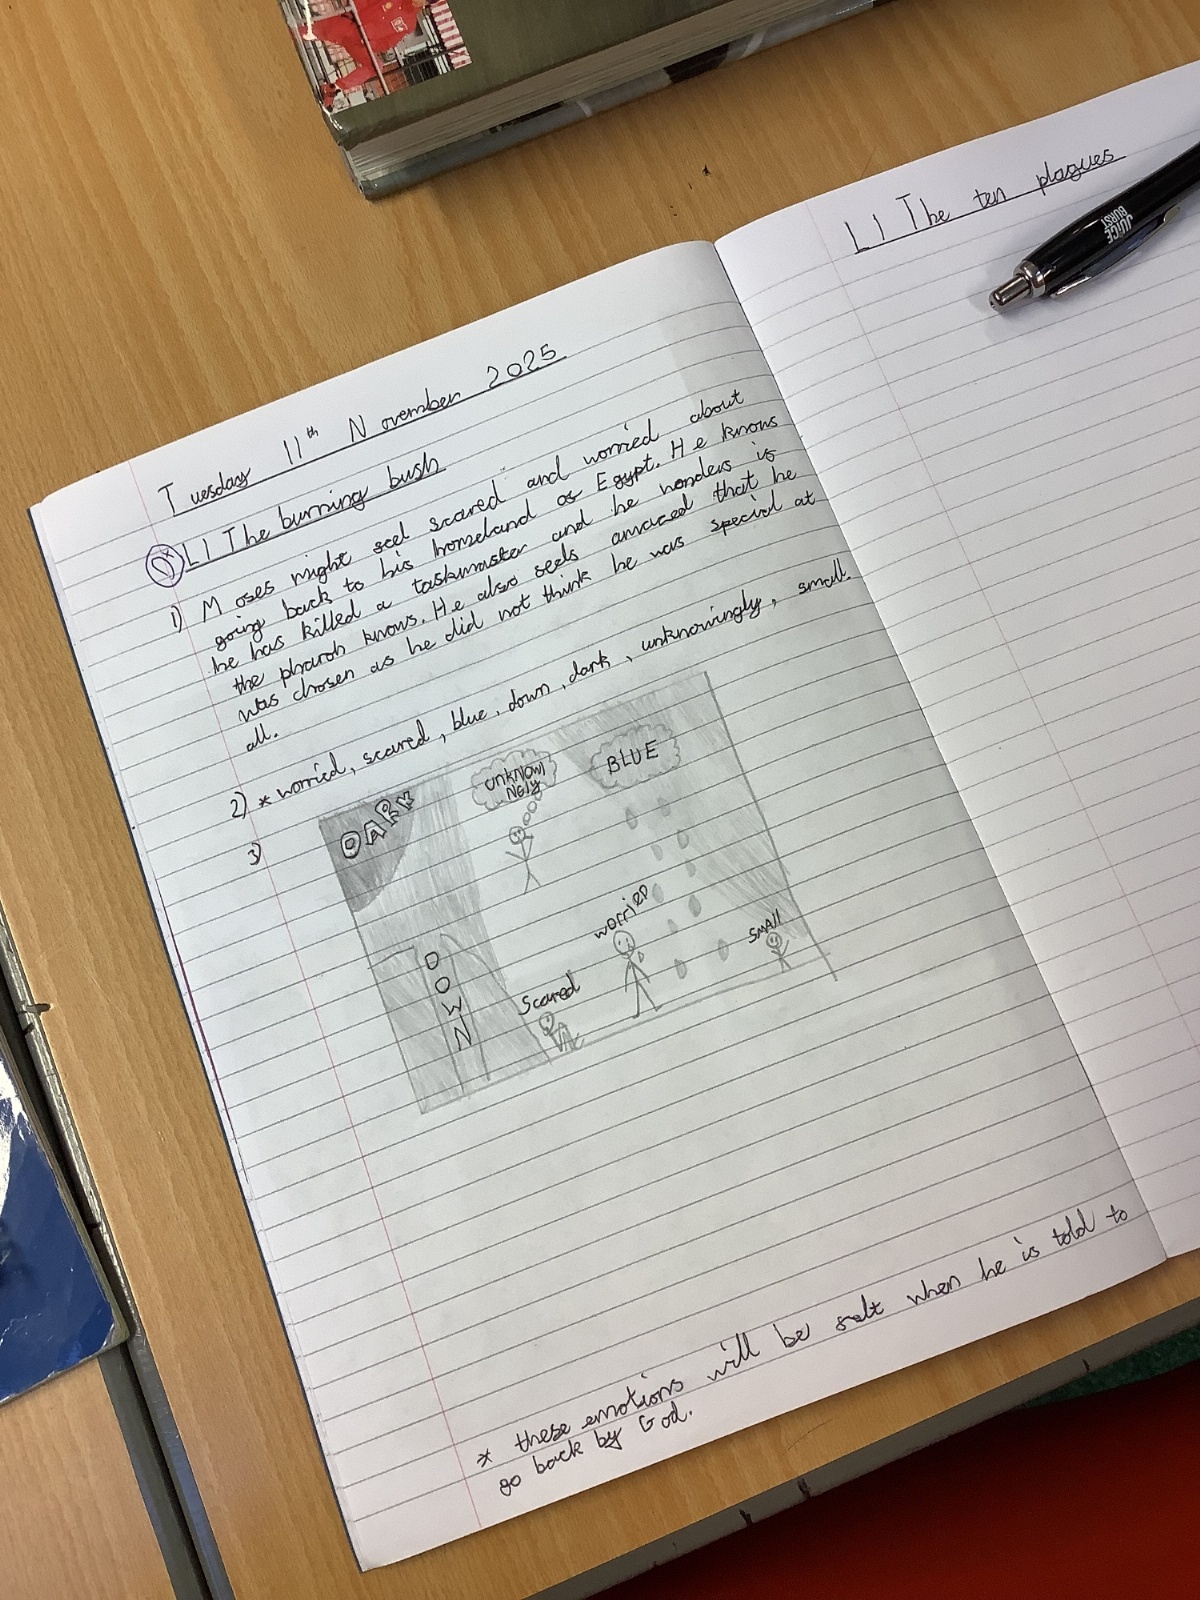 Tuesday 11th November 2025
LI The burning bush
1) Moses might feel scared and worried about
going back to his homeland of Egypt. He knows
he has killed a taskmaster and he wonders is
the pharoh knows. He also feels amazed that he
was chosen as he did not think he was special at
all.
2) * worried, scared, blue, down, dark, unknowingly, small.
3)
DARK
UNKNOWI
NGLY
BLUE
DOWN
Scared
worried
SMAll
* these emotions will be felt when he is told to
go back by God.
LI The ten plagues
JUICE
BURST